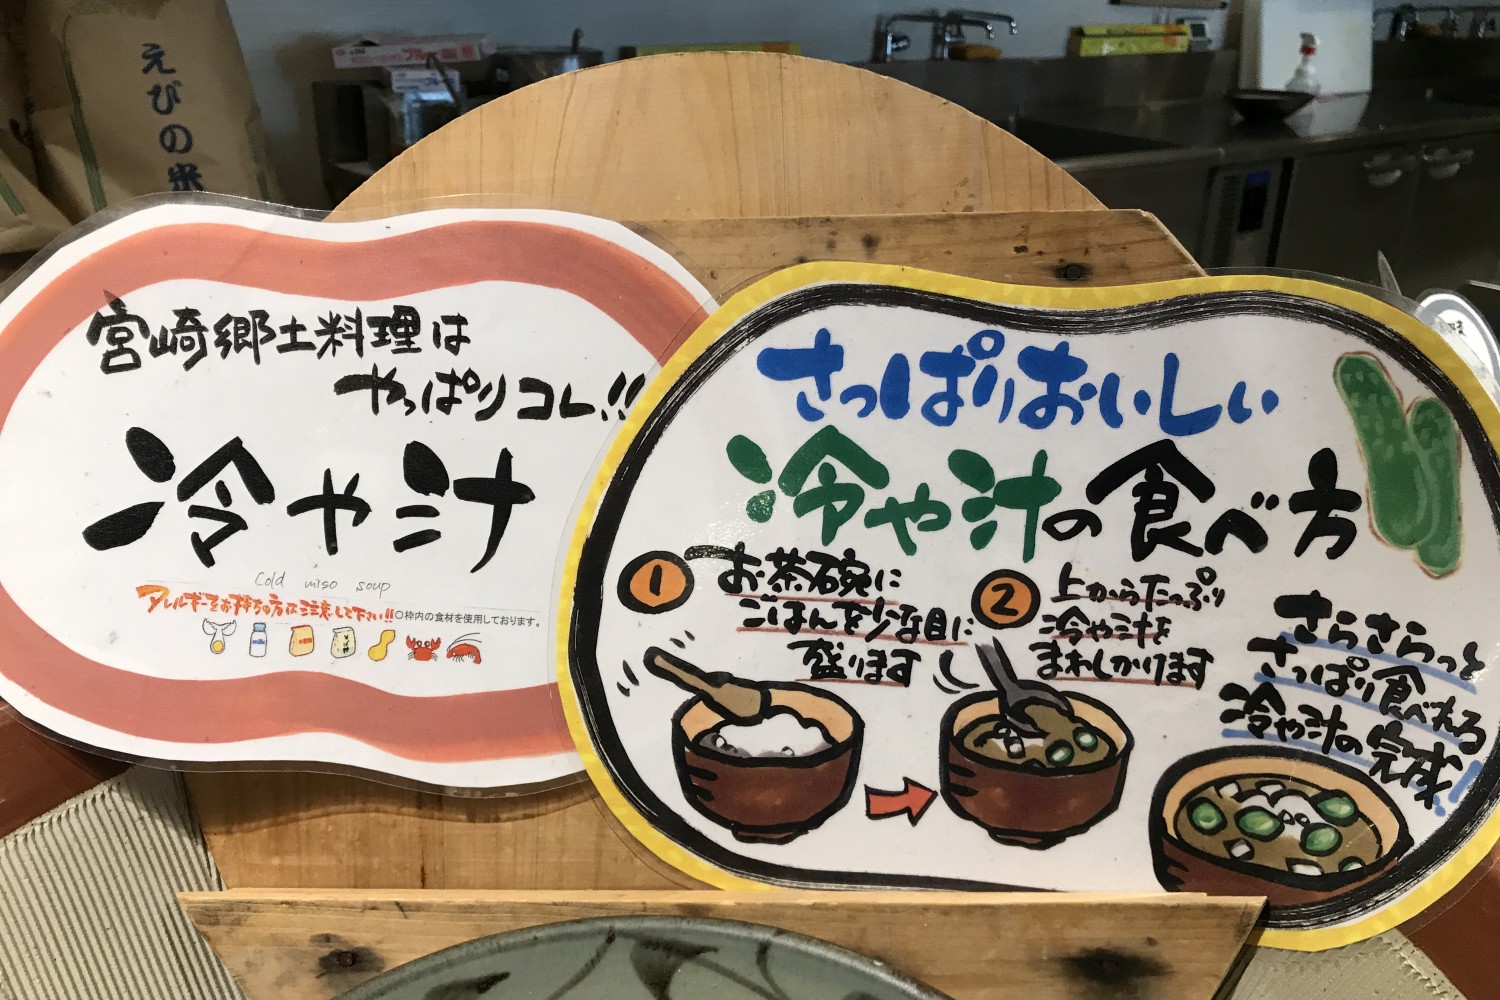 えびの米
宮崎郷土料理は
やっぱりコレ!!
冷や汁
Cold miso soup
アレルギーをお持ちの方は注意して下さい!!○枠内の食材を使用しております。
さっぱりおいしい
冷や汁の食べ方
1 お茶碗に
ごはんを少な目に
盛ります
2 上からたっぷり
冷や汁を
まわしかけます
さらさらっと
さっぱり食べれる
冷や汁の完成!